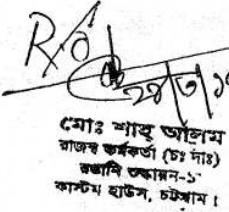 R/O
মোঃ শাহ আলম
রাজস্ব কর্মকর্তা (চঃ দাঃ)
রপ্তানি শুল্কায়ন-১
কাস্টম হাউস, চট্টগ্রাম।